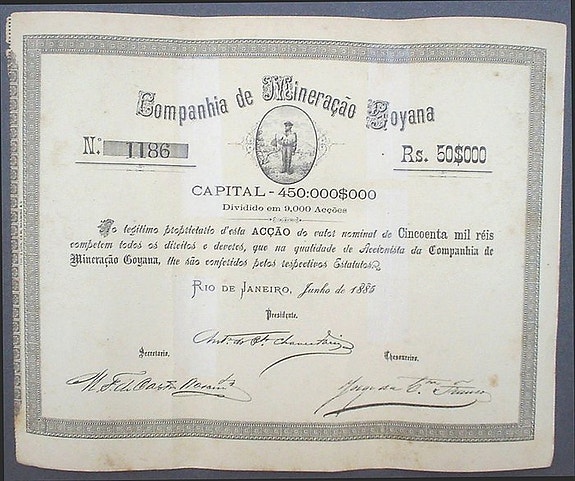 Companhia de Mineração Goyana
N.º 1186
Rs. 50$000
CAPITAL - 450:000$000
Dividido em 9,000 Acções
Ao legitimo proprietario d'esta ACÇÃO do valor nominal de Cincoenta mil réis
competem todos os direitos e deveres, que na qualidade de Accionista da Companhia de
Mineração Goyana, lhe são conferidos pelos respectivos Estatutos.
RIO DE JANEIRO, Junho de 1885
Presidente.
Secretario.
Thesoureiro.